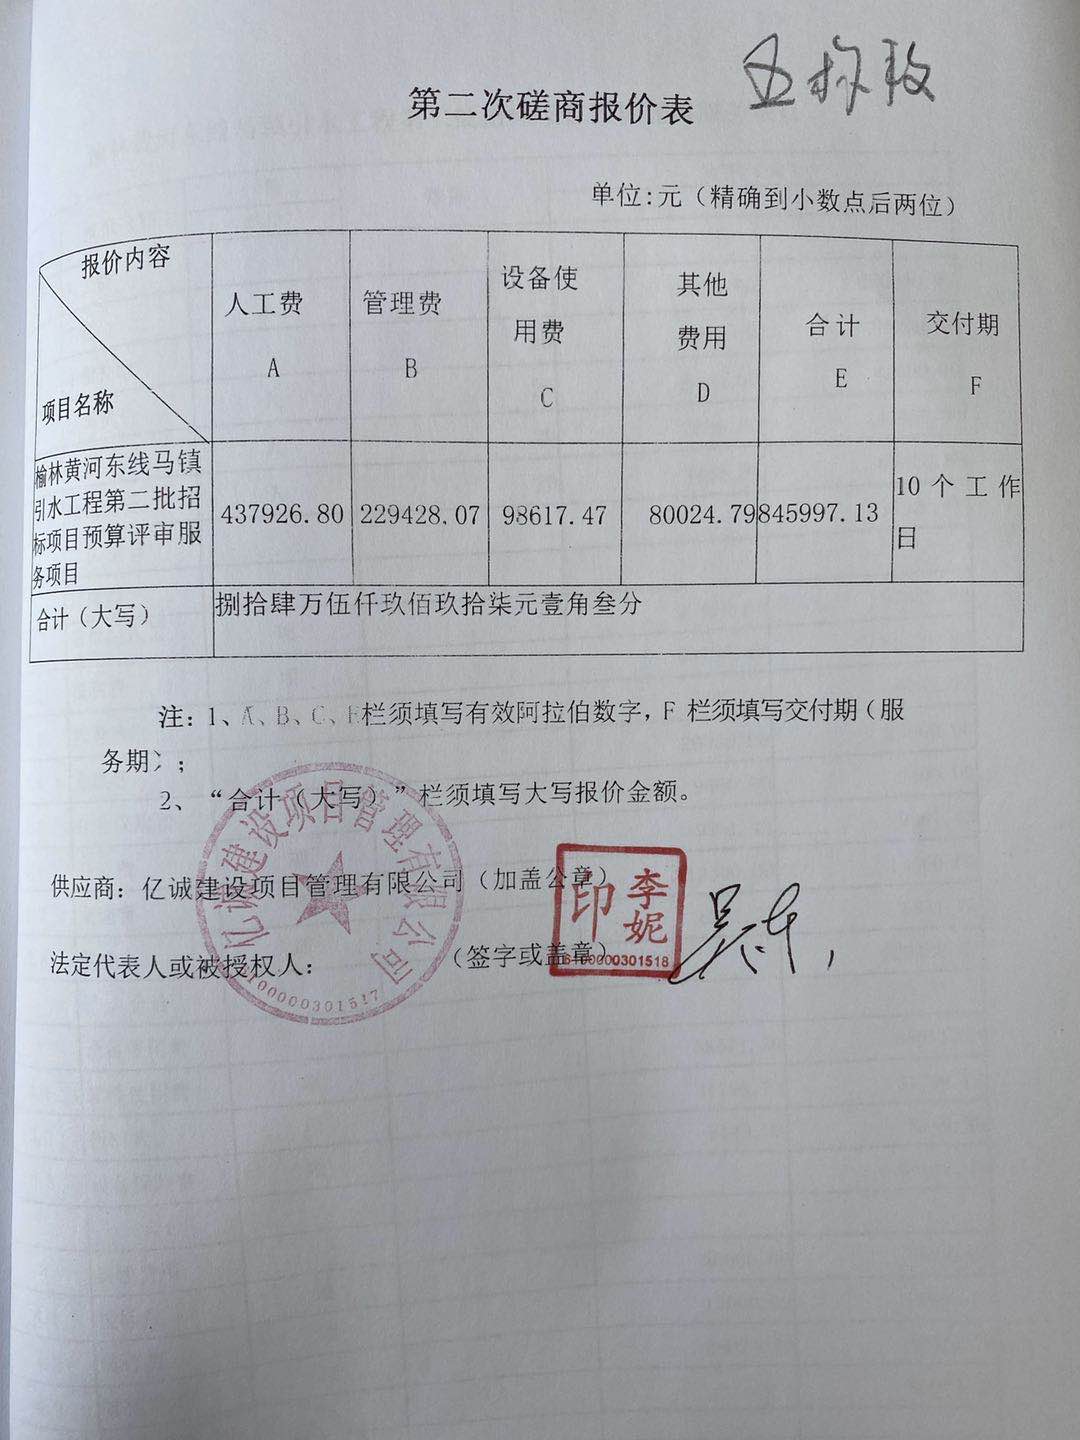 第二次磋商报价表
单位:元（精确到小数点后两位）
报价内容
项目名称
人工费
A
管理费
B
设备使
用费
C
其他
费用
D
合计
E
交付期
F
榆林黄河东线马镇
引水工程第二批招
标项目预算评审服
务项目
437926.80
229428.07
98617.47
80024.79
845997.13
10个工作
日
合计（大写）
捌拾肆万伍仟玖佰玖拾柒元壹角叁分
注：1、A、B、C、E栏须填写有效阿拉伯数字，F 栏须填写交付期（服
务期）；
2、“合计（大写）”栏须填写大写报价金额。
供应商：亿诚建设项目管理有限公司（加盖公章）
法定代表人或被授权人：（签字或盖章）
亿诚建设项目管理有限公司
6100000301517
李妮
印
6100000301518